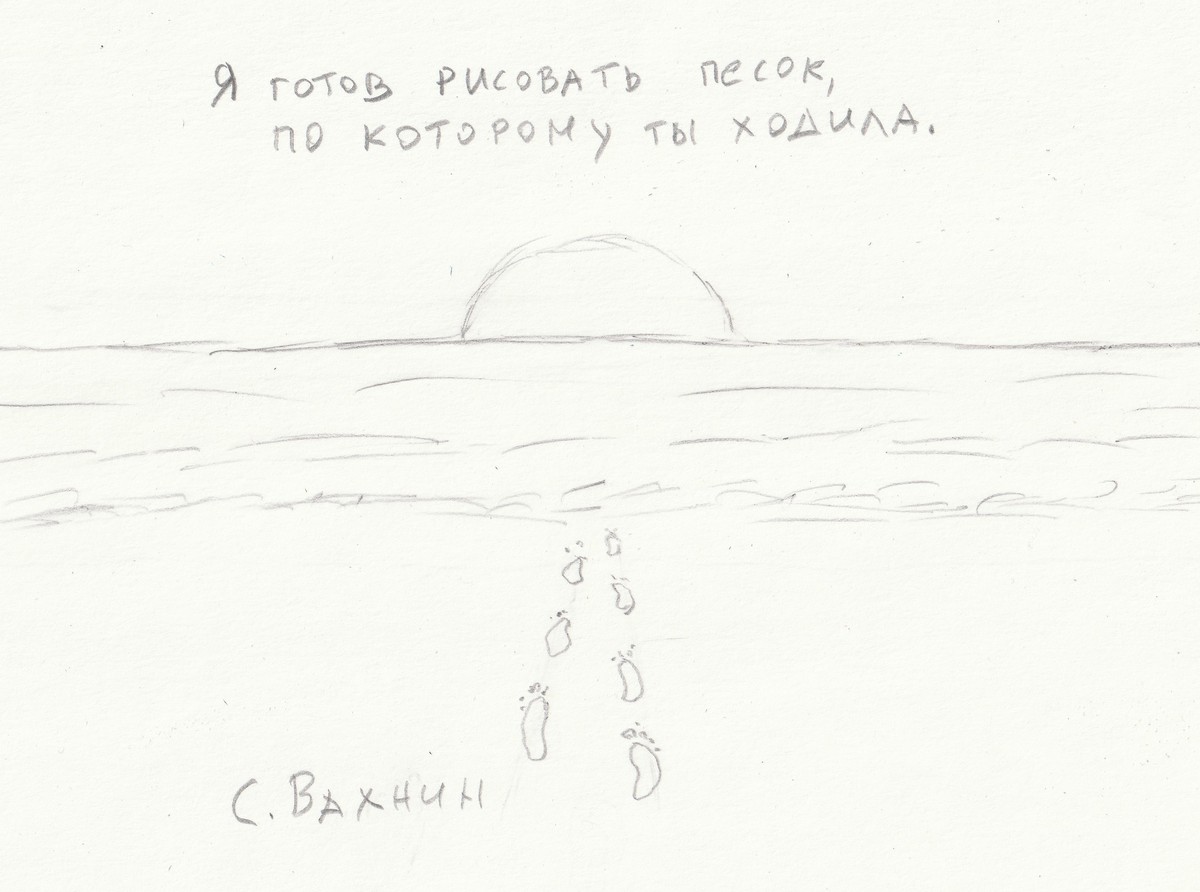 Я готов рисовать песок,
по которому ты ходила.
С. Вахнин